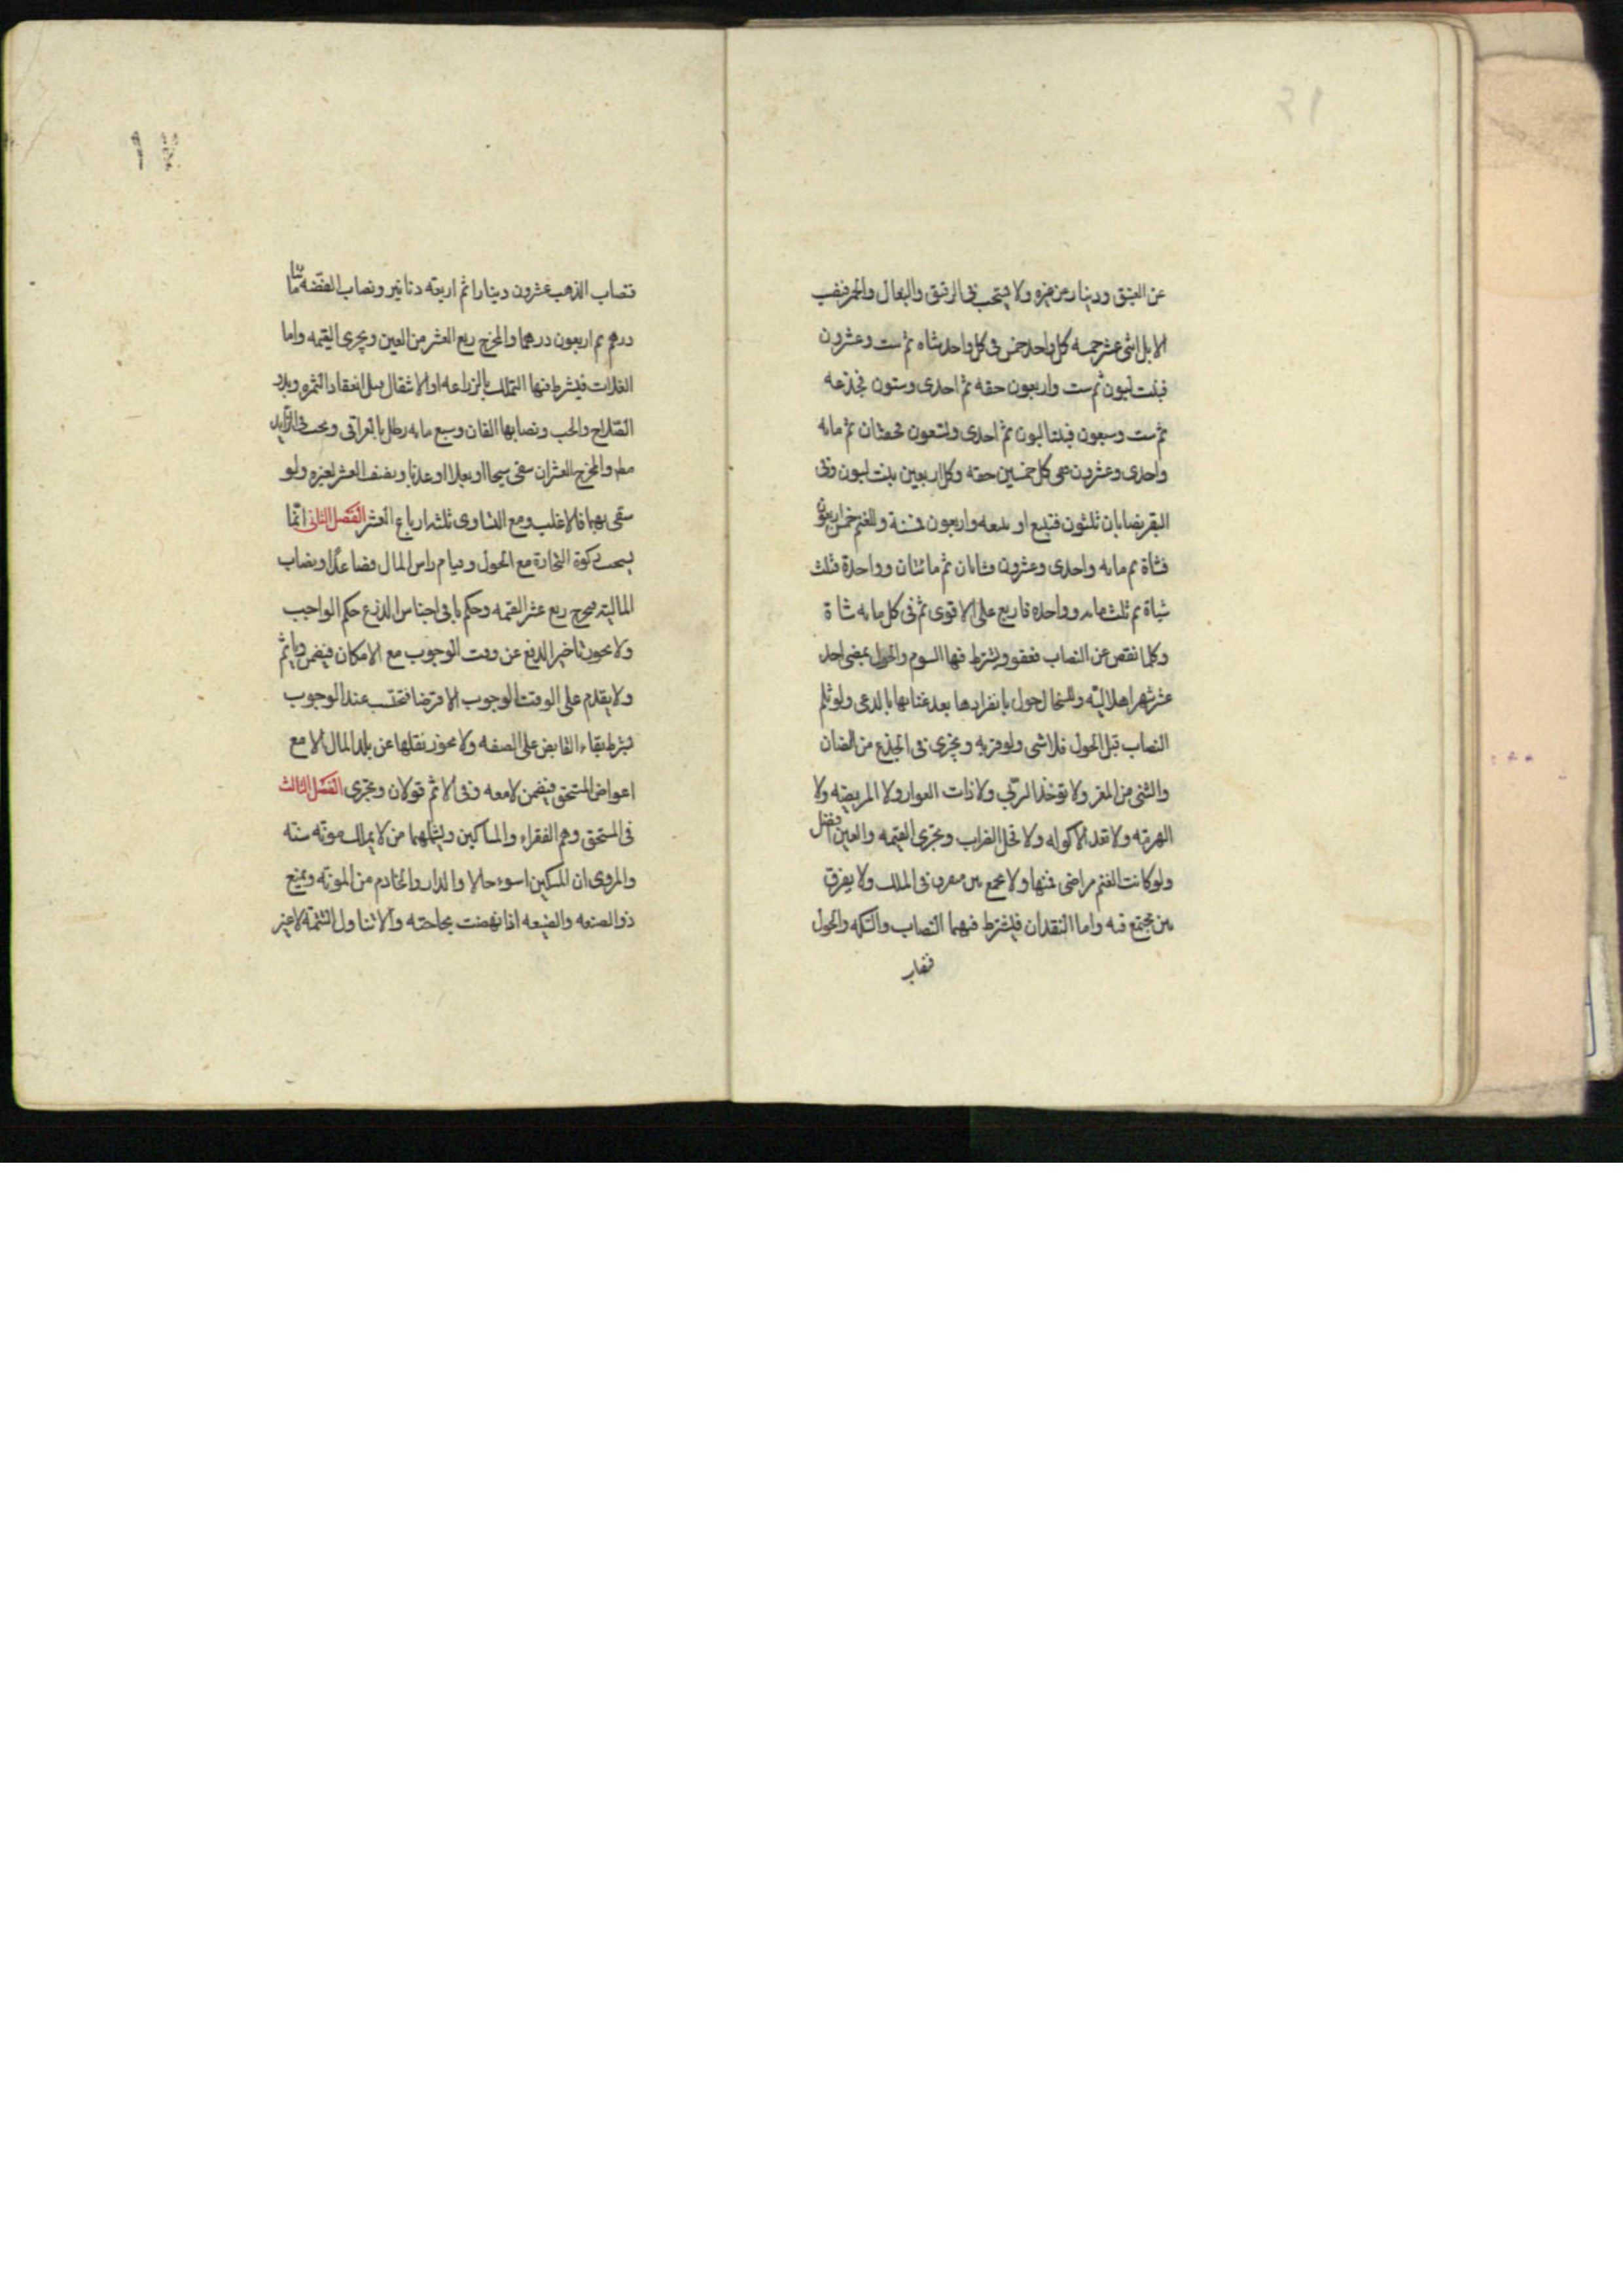 عن العتيق ودينار عن غيره ولا يستحب فى الرقيق والبغال والحمر فنصب
الابل اثنى عشر خمسه كل واحد خمس فى كل واحد شاه ثم ست وعشرون
فبنت لبون ثم ست واربعون حقه ثم احدى وستون فجذعه
ثم ست وسبعون فبنتا لبون ثم احدى وتسعون فحقتان ثم مايه
واحدى وعشرون ففى كل خمسين حقه وكل اربعين بنت لبون وفى
البقر نصابان ثلثون فتبيع او تبيعه واربعون فمسنة وللغنم خمس اربعون
فشاة ثم مايه واحدى وعشرون فشاتان ثم مائتان وواحدة فثلث
شياة ثم ثلثمايه وواحده فاربع على الاقوى ثم فى كل مايه شاة
وكلما نقص عن النصاب فعفو ويشترط فيها السوم والحول بمضى احد
عشر شهرا هلاليّه وللسخال حول بانفرادها بعد غنائها بالرعى ولو ثلم
النصاب قبل الحول فلا شى ولو فر به ويجزى فى الجذع من الضان
والثنى من المعز ولا توخذ الربّى ولا ذات العوار ولا المريضه ولا
الهرمه ولا تعد الاكوله ولا فحل الضراب وتجزى القيمه والعين افضل
ولو كانت الغنم مراضى فمنها ولا يجمع بين مفرق فى الملك ولا يفرق
بين مجتمع فيه واما النقدان فيشترط فيهما النصاب والسكه والحول
فنصاب
١٧
فنصاب الذهب عشرون دينارا ثم اربعه دنانير ونصاب الفضّه مائتا
درهم ثم اربعون درهما والمخرج ربع العشر من العين ويجزى القيمه واما
الغلات فيشترط فيها التملك بالزراعه او الانتقال قبل انعقاد الثمره وبدو
الصّلاح والحب ونصابها الفان وسبع مايه رطل بالعراقى ويجب فى الزايد
مطلقا والمخرج العشر ان سقى سيحا او بعلا او عذيا ونصف العشر بغيره ولو
سقى بهما فالاغلب ومع التساوى ثلثه ارباع العشر الفصل الثانى انّما
يستحب زكوة التجارة مع الحول وقيام راس المال فصاعدًا ونصاب
الماليّه فيخرج ربع عشر القيمه وحكم باقى اجناس الزرع حكم الواجب
ولا يجوز تاخير الدفع عن وقت الوجوب مع الامكان فيضمن وياثم
ولا يقدم على الوقت الوجوب الا قرضا فتحتسب عند الوجوب
بشرط بقاء القابض على الصفه ولا يجوز نقلها عن بلد المال الا مع
اعواض المستحق فيضمن لا معه وفى الاثم قولان ويجزى الفصل الثالث
فى المستحق وهم الفقراء والمساكين ويشملهما من لا يملك مونه سنته
والمروى ان المسكين اسوء حالا والدار والخادم من المونه ويمنع
ذو الصنعه والضيعه اذا نهضت بحاجته والا تناول التتمّه لا غير